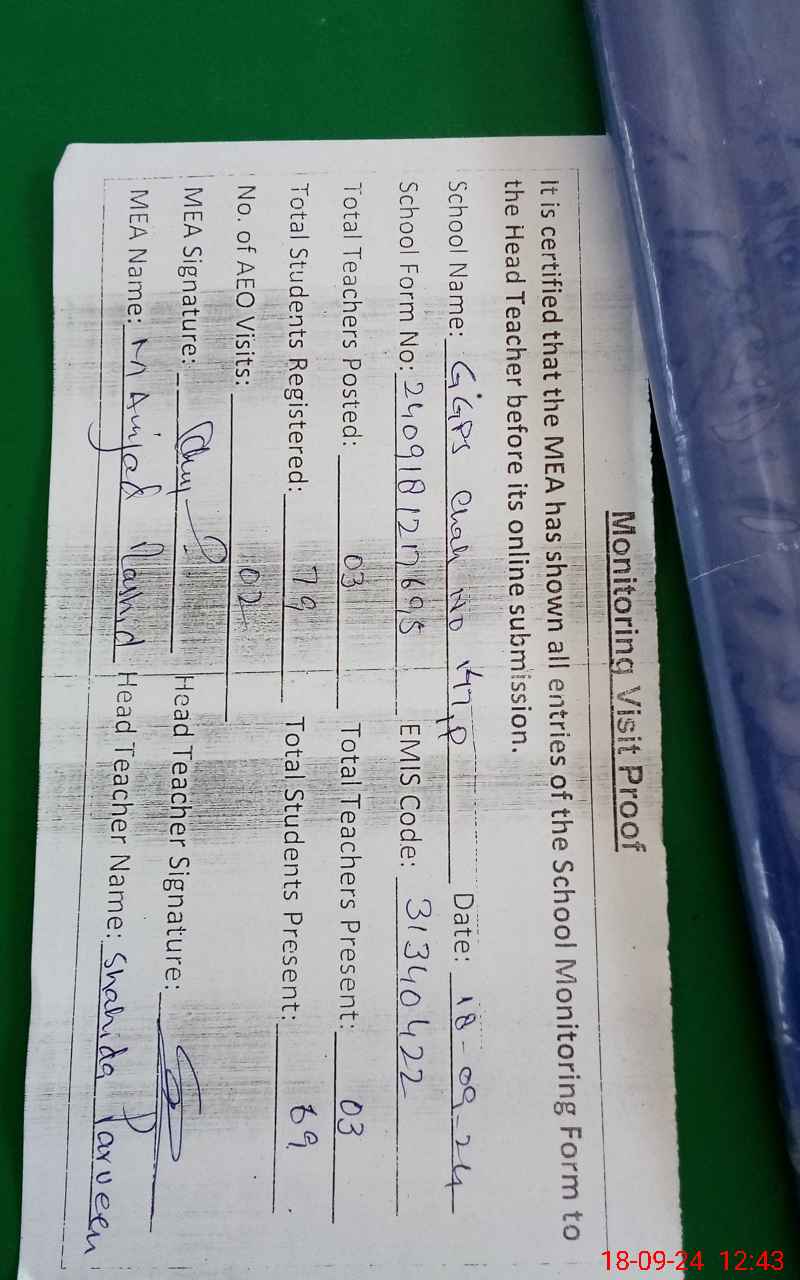 Monitoring Visit Proof
It is certified that the MEA has shown all entries of the School Monitoring Form to
the Head Teacher before its online submission.
School Name: GGPS Chak No 147,P Date: 18-09-24
School Form No: 240918121769 EMIS Code: 31340422
Total Teachers Posted: 03 Total Teachers Present: 03
Total Students Registered: 79 Total Students Present: 69
No. of AEO Visits: 02
MEA Signature: Head Teacher Signature:
MEA Name: M Amjad Rashid Head Teacher Name: Shahida Parveen
18-09-24 12:43